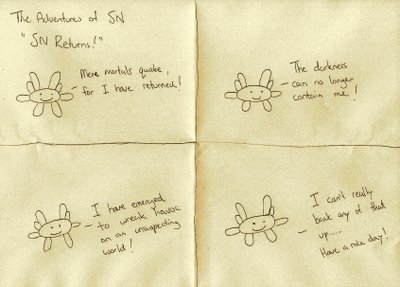 The Adventures of SN
"SN Returns!"
Mere mortals quake,
for I have returned!
The darkness
can no longer
contain me!
I have emerged
to wreak havoc
on an unsuspecting
world!
I can't really
back any of that
up.....
Have a nice day!